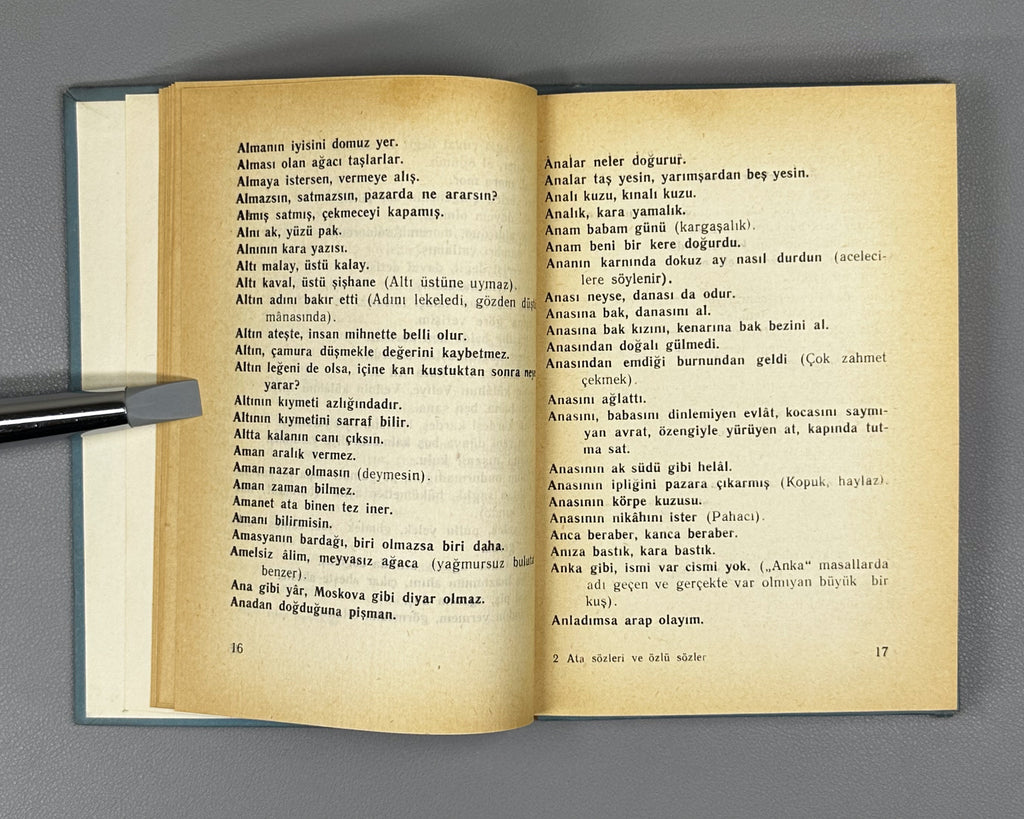 Almanın iyisini domuz yer.
Alması olan ağacı taşlarlar.
Almaya istersen, vermeye alış.
Almazsın, satmazsın, pazarda ne ararsın?
Almış satmış, çekmeceyi kapamış.
Alnı ak, yüzü pak.
Alnının kara yazısı.
Altı malay, üstü kalay.
Altı kaval, üstü şişhane (Altı üstüne uymaz).
Altın adını bakır etti (Adını lekeledi, gözden
mânasında).
Altın ateşte, insan mihnette belli olur.
Altın, çamura düşmekle değerini kaybetmez.
Altın leğeni de olsa, içine kan kustuktan sonra
yarar?
Altının kıymeti azlığındadır.
Altının kıymetini sarraf bilir.
Altta kalanın canı çıksın.
Aman aralık vermez.
Aman nazar olmasın (deymesin).
Aman zaman bilmez.
Amanet ata binen tez iner.
Amanı bilirmisin.
Amasyanın bardağı, biri olmazsa biri daha.
Amelsiz âlim, meyvasız ağaca (yağmursuz
benzer).
Ana gibi yâr, Moskova gibi diyar olmaz.
Anadan doğduğuna pişman.
16
Analar neler doğurur.
Analar taş yesin, yarımşardan beş yesin.
Analı kuzu, kınalı kuzu.
Analık, kara yamalık.
Anam babam günü (kargaşalık).
Anam beni bir kere doğurdu.
Ananın karnında dokuz ay nasıl durdun (aceleci-
lere söylenir).
Anası neyse, danası da odur.
Anasına bak, danasını al.
Anasına bak kızını, kenarına bak bezini al.
Anasından doğalı gülmedi.
Anasından emdiği burnundan geldi (Çok zahmet
çekmek).
Anasını ağlattı.
Anasını, babasını dinlemiyen evlât, kocasını saymı-
yan avrat, özengiyle yürüyen at, kapında tut-
ma sat.
Anasının ak südü gibi helâl.
Anasının ipliğini pazara çıkarmış (Kopuk, haylaz).
Anasının körpe kuzusu.
Anasının nikâhını ister (Pahacı).
Anca beraber, kanca beraber.
Anıza bastık, kara bastık.
Anka gibi, ismi var cismi yok. („Anka“ masallarda
adı geçen ve gerçekte var olmıyan büyük bir
kuş).
Anladımsa arap olayım.
2 Ata sözleri ve özlü sözler
17